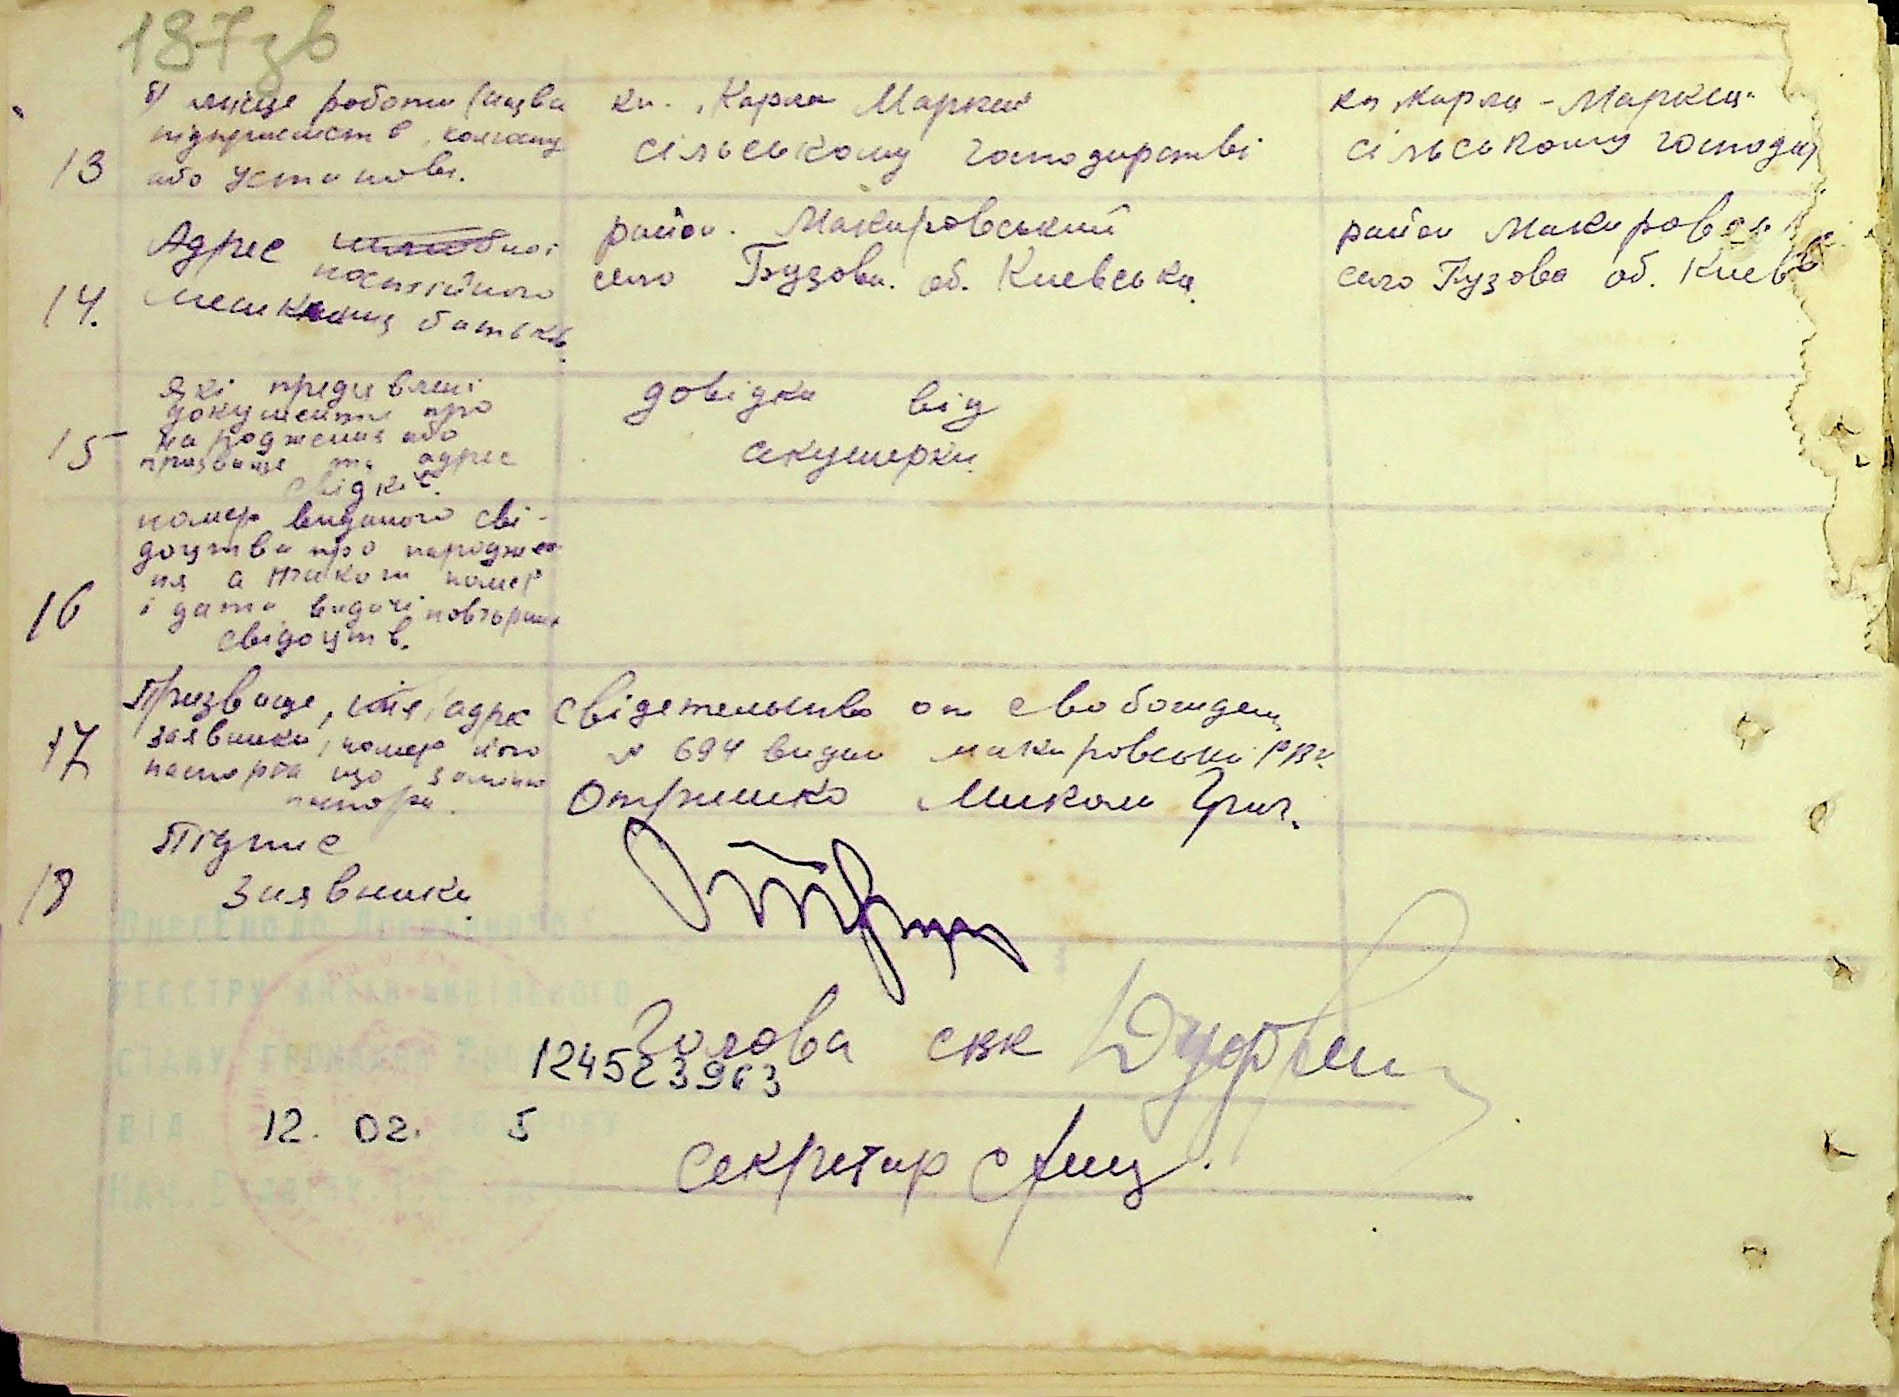 187зв
13
б) місце роботи (назва
підприємств, колгоспу
або установи.
кл. "Карла Маркса"
сільському господарстві
кл "Карла - Маркса"
сільському господар
14.
Адрес
постійного
мешканця батьків
район. Макаровський
село Бузова. об. Киевська
район Макаровсь
село Бузова об. Киев
15
Які предявлені
документи про
народження або
прізвище та адрес
свідків.
довідка від
акушерки
16
номер виданого сві-
доцтва про народжен
ня а також номер
і дата видачі повторних
свідоцтв.
17
Прізвище, імя, адрес
заявника, номер його
паспорта що заміняє
паспорт.
свідетельство о свобождені
№ 694 видан макаровськи РВК
Отришко Микола Григ.
18
Підпис
Заявника
Внесено до Державного
реєстру актів цивільного
стану громадян
124523963
від 12. 02. 5
Голова СВК
Секретар